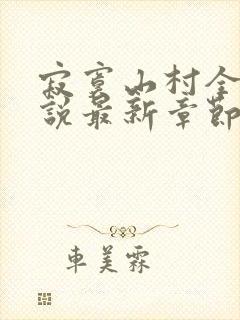 寂寞山村全
說最新章節
車美霖